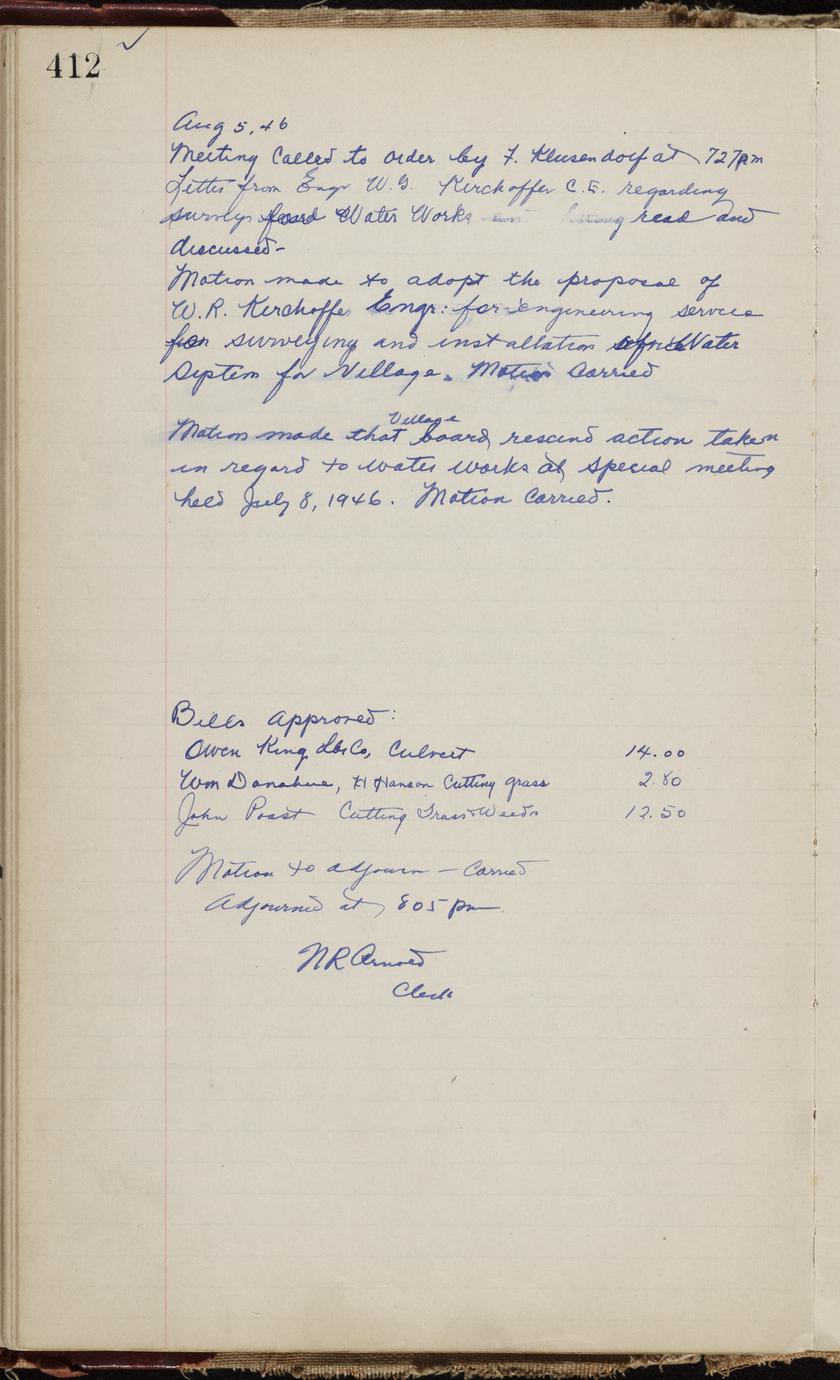 412
Aug 5, 46
Meeting Called to order by F. Klusendorf at 727pm
Letter from Engr W.G. Kirchoffer C.E. regarding
surveys Water Works read and
discussed-
Motion made to adopt the proposal of
W.R. Kirchoffer Engr: for engineering service
for surveying and installation Water
System for Village. Motion Carried
Village
Motion made that board rescind action taken
in regard to water works at special meeting
held July 8, 1946. Motion Carried.
Bills Approved:
Owen King Lbr Co, Culvert 14.00
Wm Donahue, H Hanson Cutting grass 2.80
John Poast Cutting Grass & Weeds 12.50
Motion to adjourn - Carried
Adjourned at 805 pm
NR Arnold
Clerk